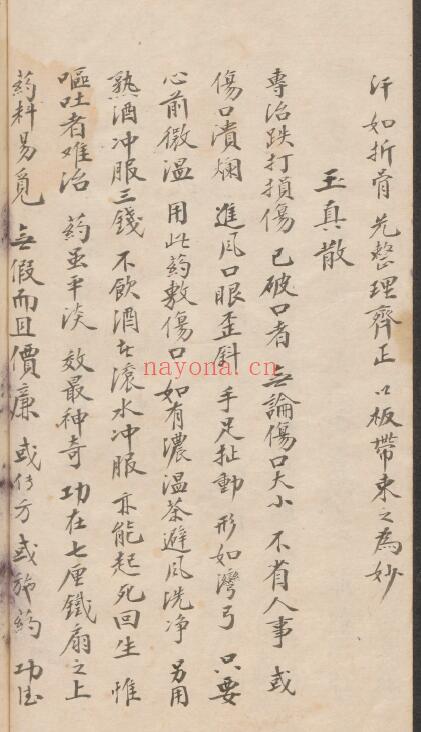 汗 如折骨 先整理齊正 以板帶束之為妙
玉真散
專治跌打損傷 已破口者 無論傷口大小 不省人事 或
傷口潰爛 進风口眼歪斜 手足扯動 形如灣弓 只要
心前微溫 用此葯敷傷口 如有濃 溫茶避风洗净 另用
熟酒冲服三錢 不飲酒者滾水冲服 亦能起死回生 惟
嘔吐者难治 葯虽平淡 效最神奇 功在七厘鐵扇之上
葯料易覓 無假而且價廉 或传方 或施葯 功德
nayona.cn